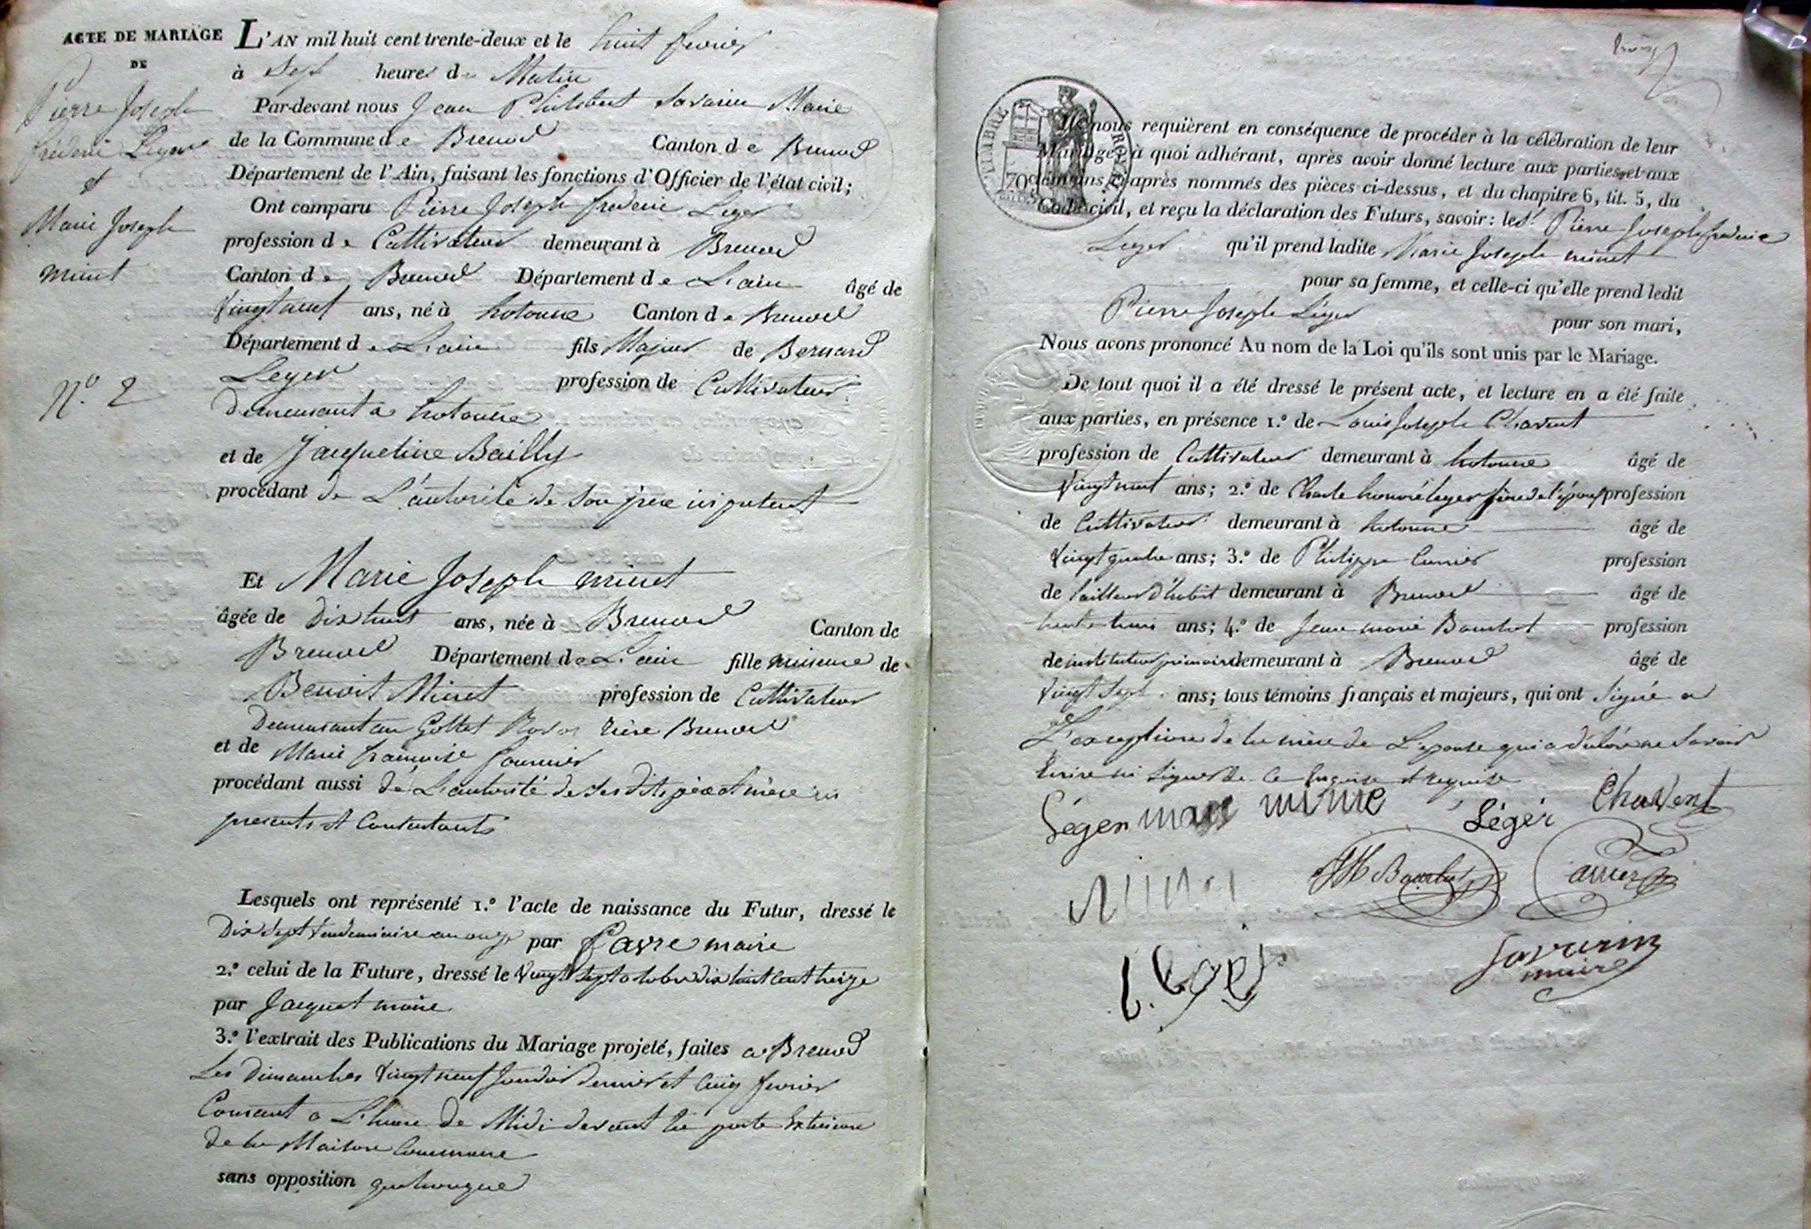 ACTE DE MARIAGE
DE
Pierre Joseph
fréderic Leger
et
Marie Joseph
minet
N.º 2
L'AN mil huit cent trente-deux et le huit fevrier
à Sept heures de Matin
Par-devant nous Jean Philibert Savarin Maire
de la Commune de Brenod Canton de Brenod
Département de l'Ain, faisant les fonctions d'Officier de l'état civil;
Ont comparu Pierre Joseph frederic Leger
profession de Cultivateur demeurant à Brenod
Canton de Brenod Département de L'ain âgé de
Vingt neuf ans, né à hotonne Canton de Brenod
Département de L'ain fils Majeur de Bernard
Leger profession de Cultivateur
Demeurant a hotonne
et de Jacqueline Bailly
procédant de L'autorité de son père ici présent
Et Marie Joseph minet
âgée de Dix huit ans, née à Brenod Canton de
Brenod Département de L'ain fille mineure de
Benoit Minet profession de Cultivateur
Demeurant au rière Brenod
et de Marie françoise fournier
procédant aussi de L'autorité de ses dits père et mère ici
presents et Consentants
Lesquels ont représenté 1.º l'acte de naissance du Futur, dressé le
Dix Sept Vendemiaire an onze par favre maire
2.º celui de la Future, dressé le Vingt Sept octobre dix huit cent treize
par Jacquet maire
3.º l'extrait des Publications du Mariage projeté, faites a Brenod
Les dimanches Vingt neuf Janvier dernier et Cinq fevrier
Courant a L'heure de Midi devant la porte Exterieure
de la Maison Commune
sans opposition quelconque
TIMBRE ROYAL
70
Ils nous requièrent en conséquence de procéder à la célébration de leur
Mariage; à quoi adhérant, après avoir donné lecture aux parties et aux
témoins ci-après nommés des pièces ci-dessus, et du chapitre 6, tit. 5, du
Code civil, et reçu la déclaration des Futurs, savoir: led.t Pierre Joseph frederic
Leger qu'il prend ladite Marie Joseph minet
pour sa femme, et celle-ci qu'elle prend ledit
Pierre Joseph Léger pour son mari,
Nous avons prononcé Au nom de la Loi qu'ils sont unis par le Mariage.
De tout quoi il a été dressé le présent acte, et lecture en a été faite
aux parties, en présence 1.º de Louis Joseph Chavent
profession de Cultivateur demeurant à hotonne âgé de
Vingt neuf ans; 2.º de Charle honoré leger frère de l'époux profession
de Cultivateur demeurant à hotonne âgé de
Vingt quatre ans; 3.º de Philippe profession
de tailleur d'habit demeurant à Brenod âgé de
trente trois ans; 4.º de Jean marie profession
de instituteur primaire demeurant à Brenod âgé de
Vingt Sept ans; tous témoins français et majeurs, qui ont Signé a
L'exception de la mère de L'epouse qui a déclaré ne Savoir
Ecrire ni Signer de ce Enquise et requise
Léger mari Léger Chavent
Savarin
maire